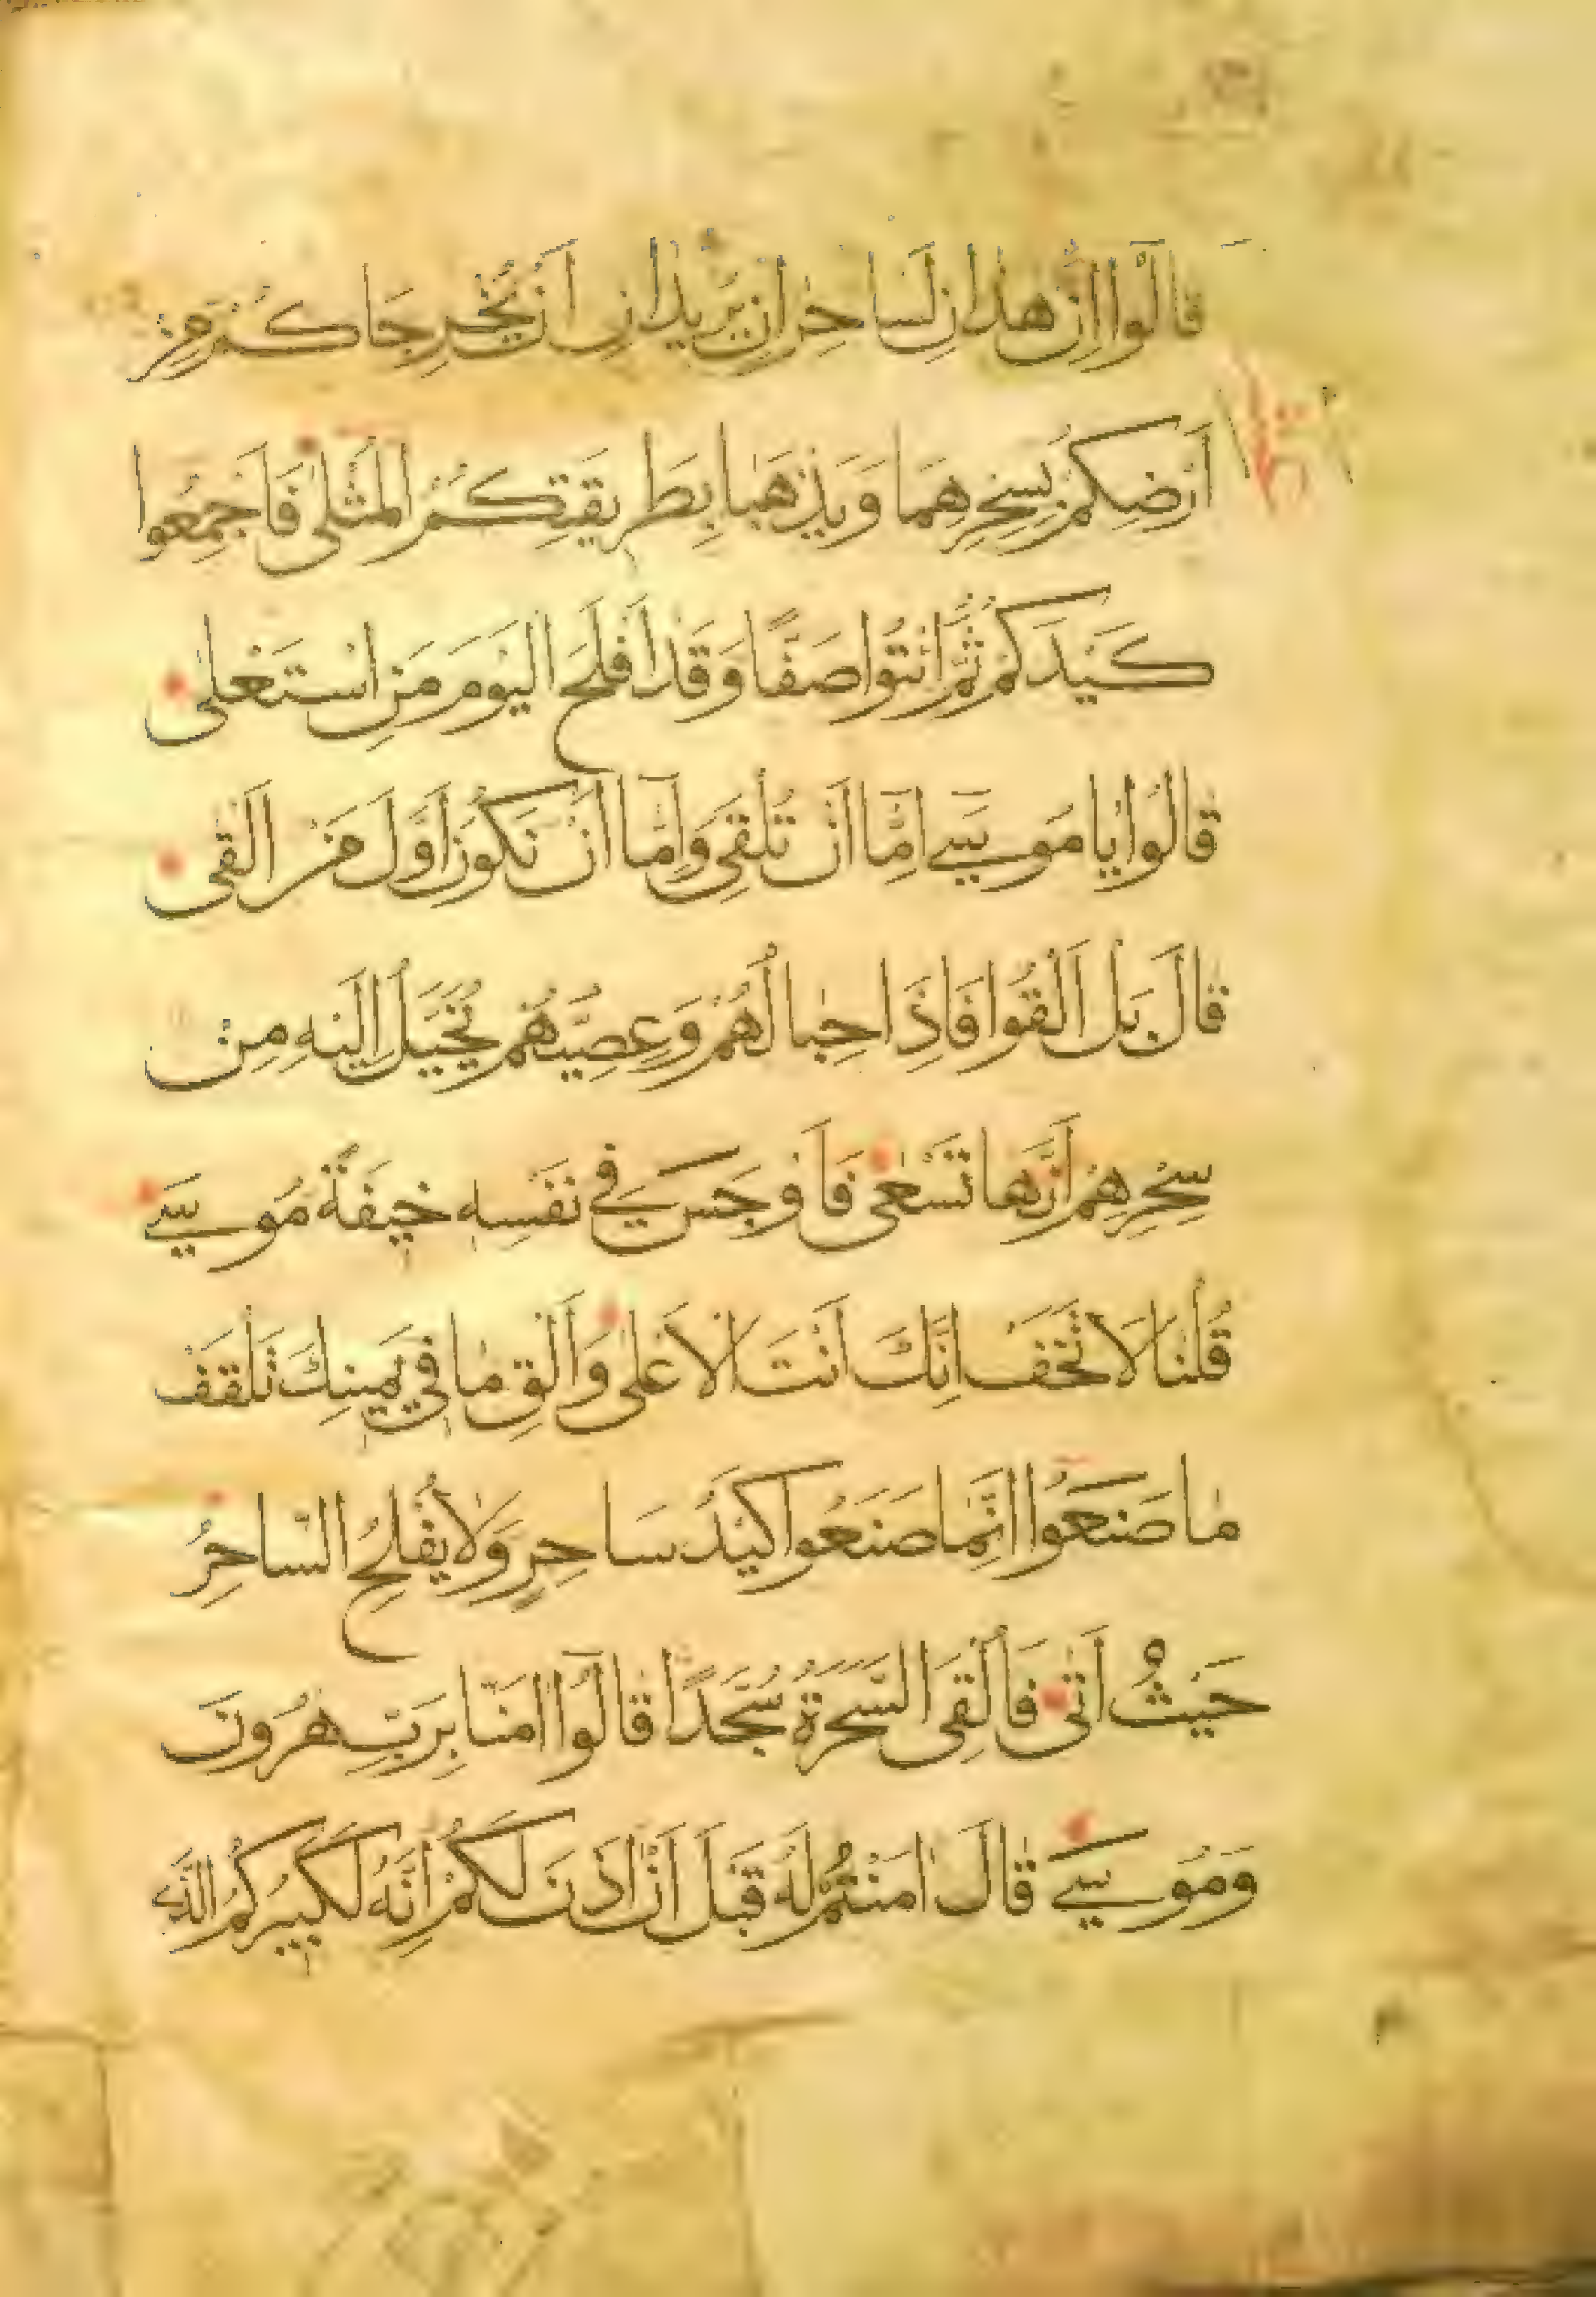 قَالُوا إِنْ هٰذَانِ لَسَاحِرَانِ يُرِيدَانِ أَنْ يُخْرِجَاكُمْ مِنْ
أَرْضِكُمْ بِسِحْرِهِمَا وَيَذْهَبَا بِطَرِيقَتِكُمُ الْمُثْلَى فَأَجْمِعُوا
كَيْدَكُمْ ثُمَّ ائْتُوا صَفًّا وَقَدْ أَفْلَحَ الْيَوْمَ مَنِ اسْتَعْلَى
قَالُوا يَا مُوسَى إِمَّا أَنْ تُلْقِيَ وَإِمَّا أَنْ نَكُونَ أَوَّلَ مَنْ أَلْقَى
قَالَ بَلْ أَلْقُوا فَإِذَا حِبَالُهُمْ وَعِصِيُّهُمْ يُخَيَّلُ إِلَيْهِ مِنْ
سِحْرِهِمْ أَنَّهَا تَسْعَى فَأَوْجَسَ فِي نَفْسِهِ خِيفَةً مُوسَى
قُلْنَا لَا تَخَفْ إِنَّكَ أَنْتَ الْأَعْلَى وَأَلْقِ مَا فِي يَمِينِكَ تَلْقَفْ
مَا صَنَعُوا إِنَّمَا صَنَعُوا كَيْدُ سَاحِرٍ وَلَا يُفْلِحُ السَّاحِرُ
حَيْثُ أَتَى فَأُلْقِيَ السَّحَرَةُ سُجَّدًا قَالُوا اٰمَنَّا بِرَبِّ هٰرُونَ
وَمُوسَى قَالَ اٰمَنْتُمْ لَهُ قَبْلَ أَنْ اٰذَنَ لَكُمْ إِنَّهُ لَكَبِيرُكُمُ الَّذِي